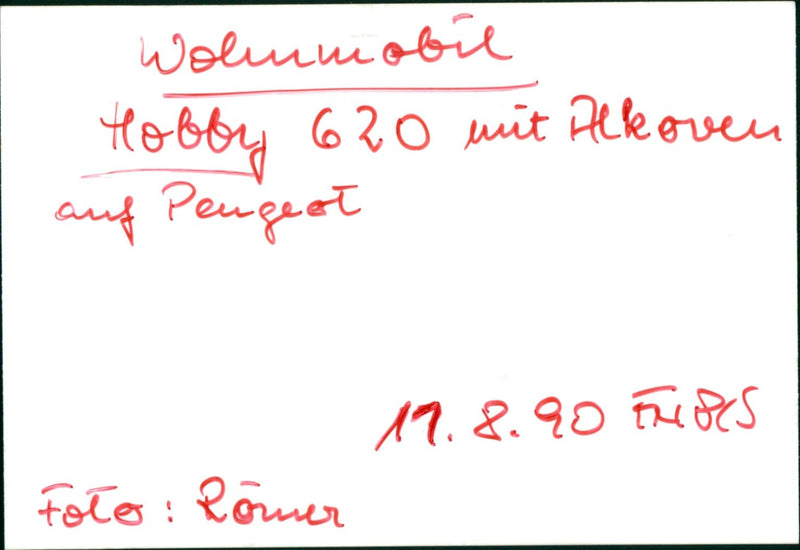 Wohnmobil
Hobby 620 mit Alkoven
auf Peugeot
11. 8. 90
Foto: Römer